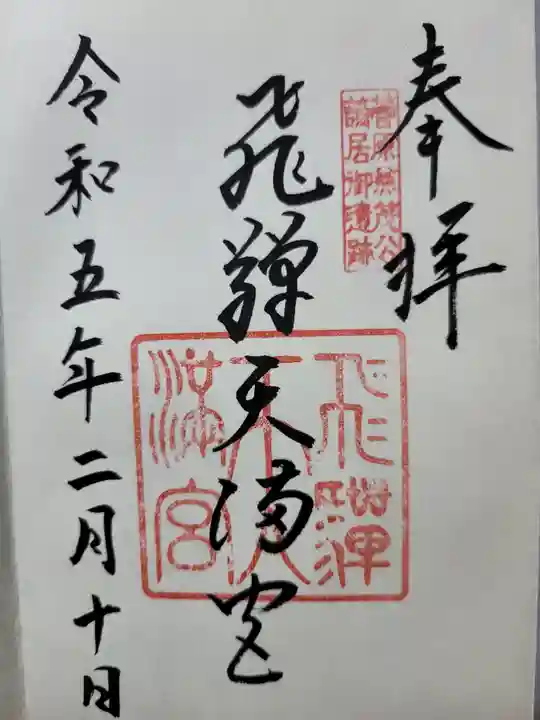 奉拝
菅原兼茂公
謫居御遺跡
飛騨天満宮
飛騨
天
満宮
令和五年二月十日